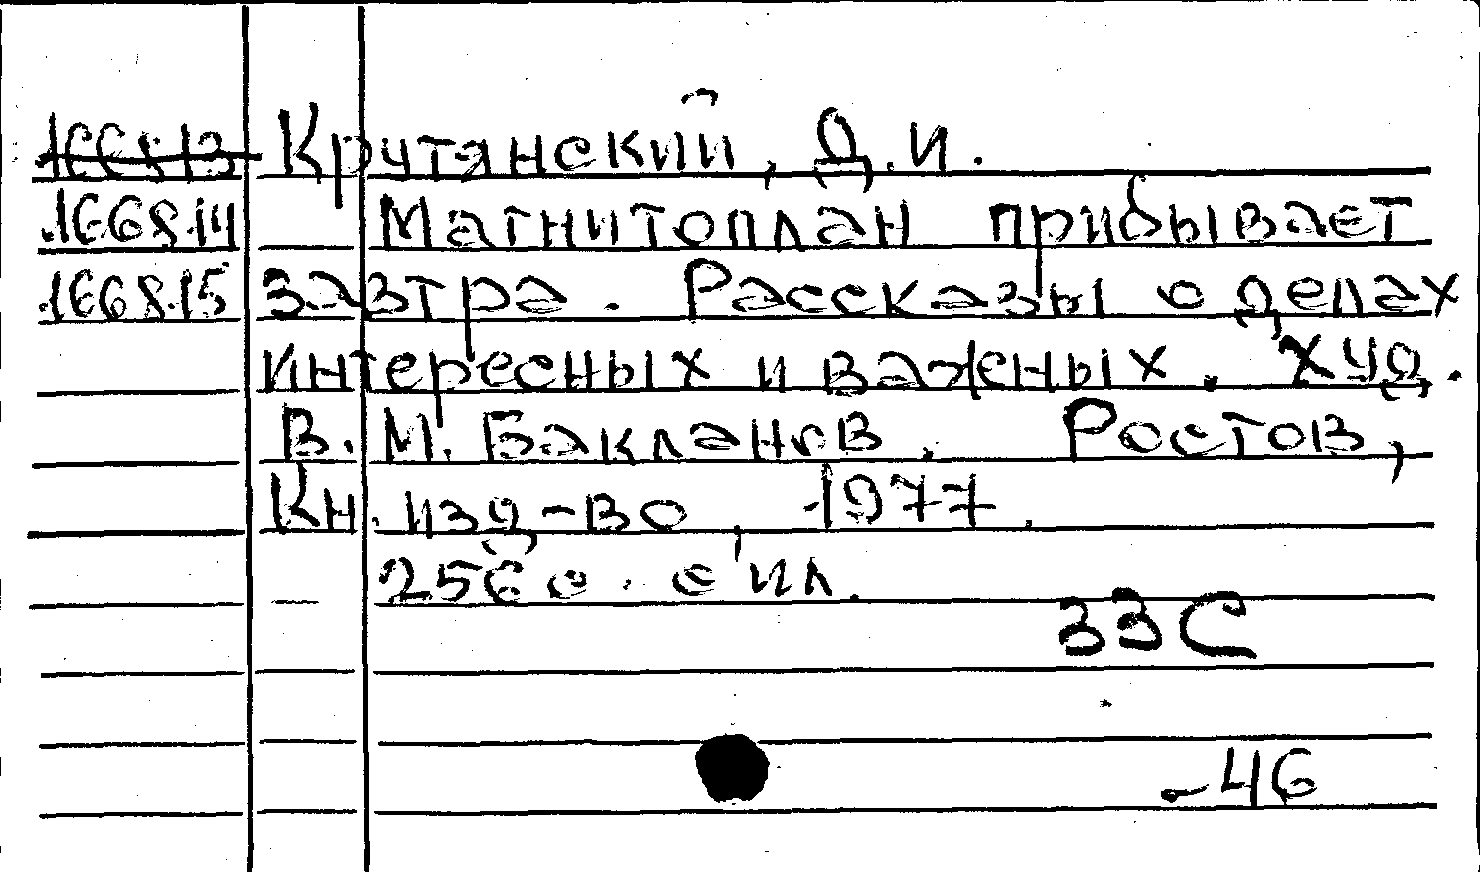 166813 Крутянский, Д.И.
166814 Магнитоплан прибывает
166815 завтра. Рассказы о делах
интересных и важных. Худ.
В.М. Бакланов. Ростов,
Кн. изд-во, 1977.
256 с. с ил.
33С
-46